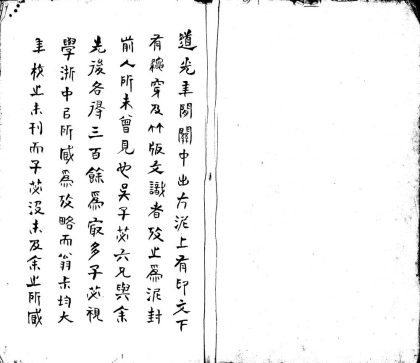 道光年間關中出方泥上有印文下
有繩穿及竹版文識者攷止為泥封
前人所未曾見也吳子苾六兄與余
先後各得三百餘為寂多子苾視
學浙中㠯所臧為攷略而翁未均大
年校止未刊而子苾沒未及余止所臧